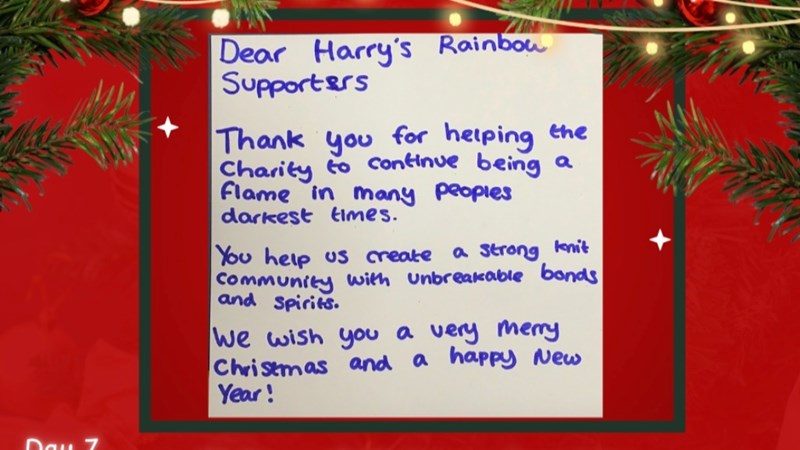 Dear Harry's Rainbow
Supporters
Thank you for helping the
Charity to continue being a
flame in many peoples
darkest times.
You help us create a strong knit
community with unbreakable bonds
and spirits.
We wish you a very merry
Christmas and a happy New
Year!
Day 7